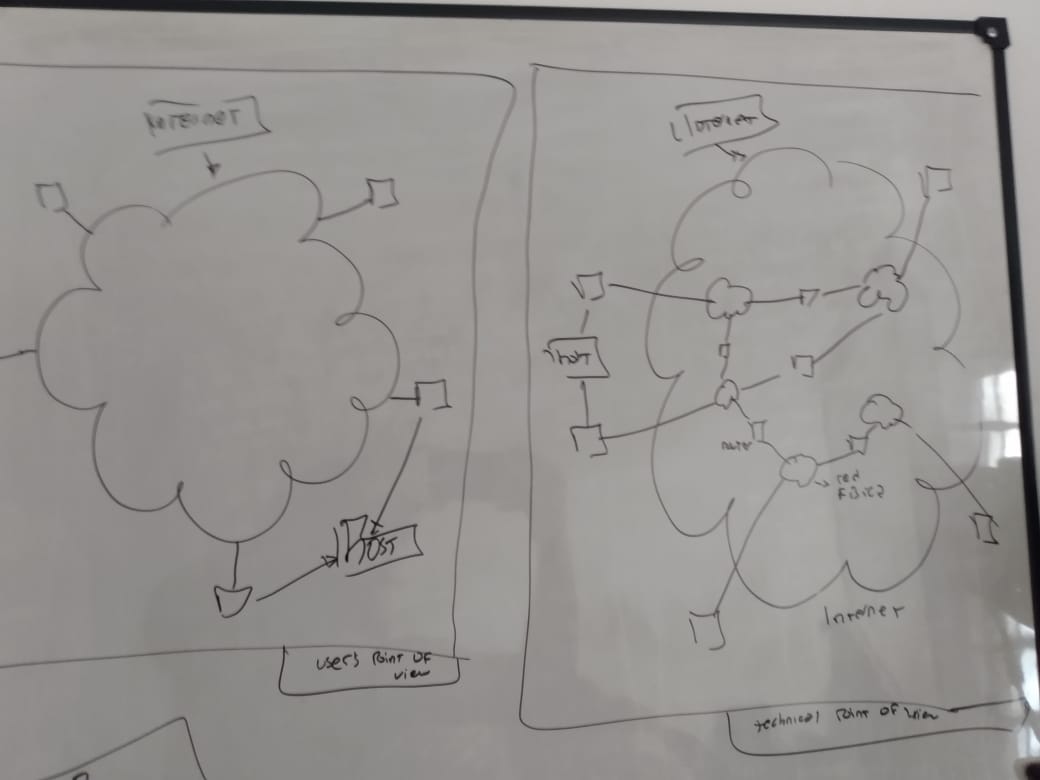 INTERNET
HOST
users Point OF
view
Internet
Host
router
red
FISICA
Internet
technical Point OF view